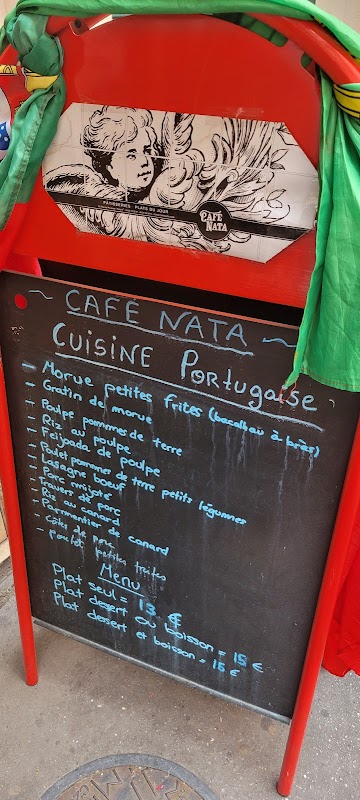 PÂTISSERIES PLATS DU JOUR
CAFÉ
NATA
~ CAFE NATA ~
CUISINE PORTUGAISE
- Morue petites frites (bacalhau à bràs)
- Gratin de morue
- Poulpe pommes de terre
- Riz au poulpe
- Feijoada de poulpe
- Poulet pommes de terre petits légumes
- Lasagne boeuf
- Porc mijoté
- Travers de porc
- Riz au canard
- Parmentier de canard
- de porc
- poulet petites frites
Menu
Plat seul = 13 €
Plat desert ou boisson = 15 €
Plat dessert et boisson =